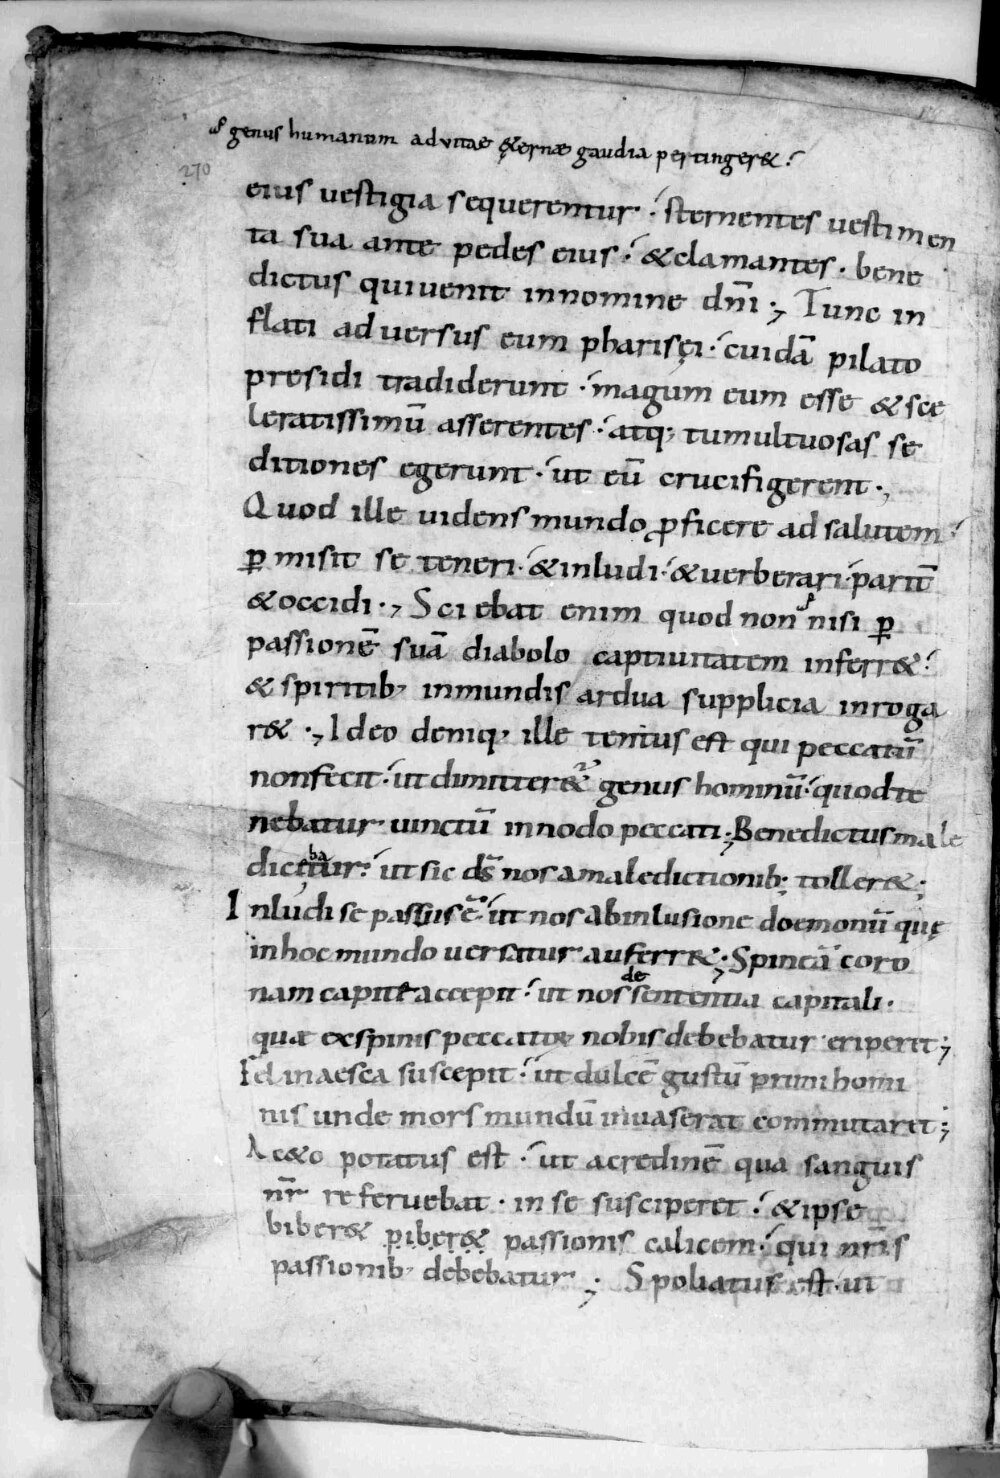 genus humanum ad vitae &ernæ gaudia pertinger&.
270
eius vestigia sequerentur. sternentes vestimen
ta sua ante pedes eius. & clamantes. bene
dictus qui uenit in nomine dñi; Tunc in
flati aduersus eum pharisęi. cuidā pilato
presidi tradiderunt. magum eum esse & sce
leratissimū asserentes. atq; tumultuosas se
ditiones egerunt. ut eū crucifigerent.,
Quod ille uidens mundo ꝓficere ad salutem.
ꝑmisit se teneri. & inludi. & uerberari. parit̄
& occidi., Sciebat enim quod non nisi ꝑ
passionē suā diabolo captiuitatem inferr&.
& spiritib; inmundis ardua supplicia inroga
r&., Ideo deniq; ille tentus est qui peccatū
non fecit. ut dimitter& genus hominū. quod te
nebatur uinctū in nodo peccati; Benedictus male
dicębatur. ut sic dš nos a maledictionib; toller&;
Inludi se passus ē. ut nos ab inlusione doemonū quę
in hoc mundo uersatur auferr&; Spineā coro
nam capite accepit. ut nos de sententia capitali.
quæ ex spinis peccati nobis debebatur eriperet;
Fel in aesca suscepit. ut dulcē gustū primi homi
nis unde mors mundū inuaserat commutaret;
Ac&o potatus est. ut acredinē qua sanguis
nr̄ referuebat. in se susciperet. & ipse
biber& piber& passionis calicem. qui nr̄is
passionib; debebatur; Spoliatus est. ut